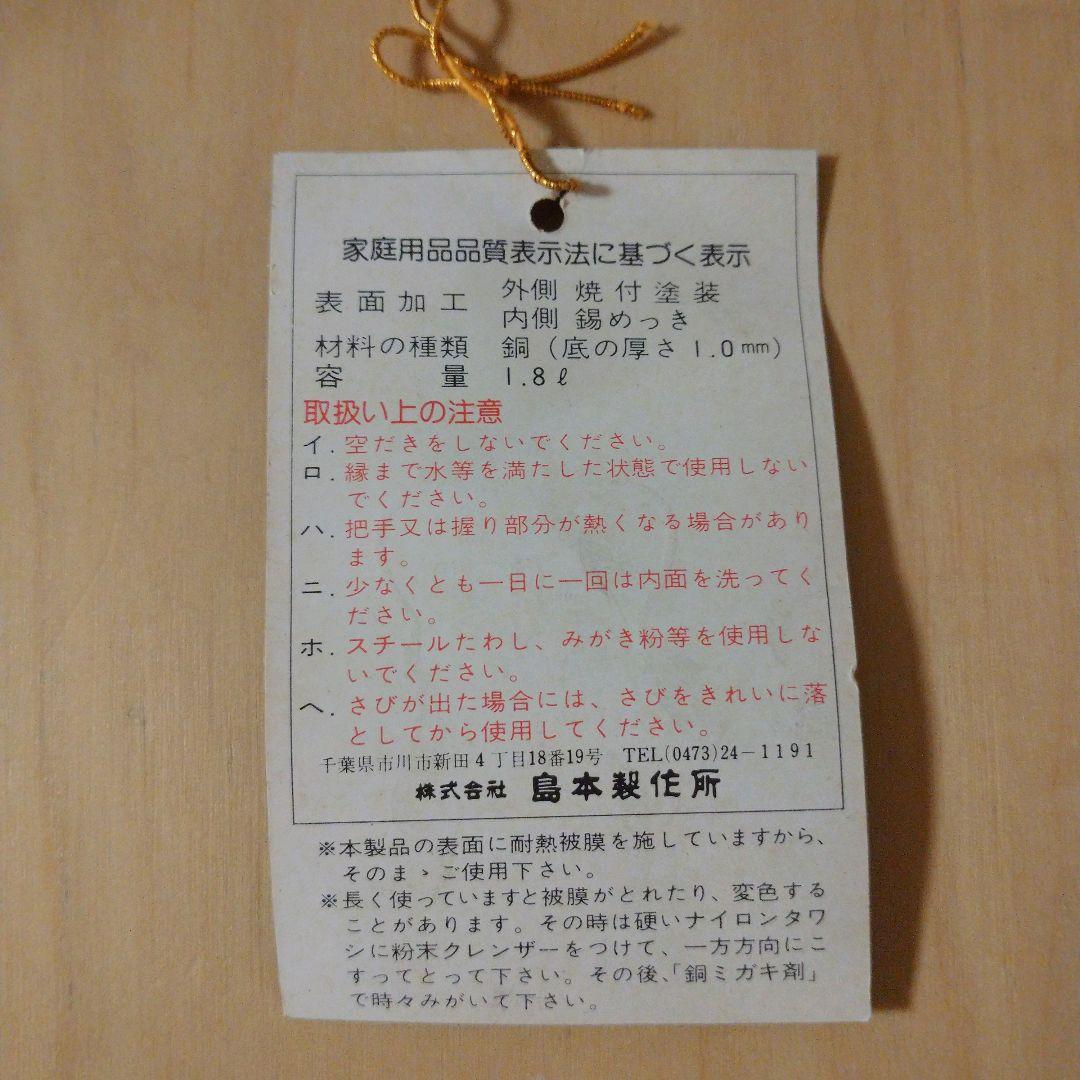 家庭用品品質表示法に基づく表示
表面加工 外側 焼付塗装
内側 錫めっき
材料の種類 銅(底の厚さ1.0mm)
容量 1.8ℓ
取扱い上の注意
イ.空だきをしないでください。
ロ.縁まで水等を満たした状態で使用しない
でください。
ハ.把手又は握り部分が熱くなる場合があり
ます。
ニ.少なくとも一日に一回は内面を洗ってく
ださい。
ホ.スチールたわし、みがき粉等を使用しな
いでください。
ヘ.さびが出た場合には、さびをきれいに落
としてから使用してください。
千葉県市川市新田4丁目18番19号 TEL(0473)24-1191
株式会社 島本製作所
※本製品の表面に耐熱被膜を施していますから、
そのまゝご使用下さい。
※長く使っていますと被膜がとれたり、変色する
ことがあります。その時は硬いナイロンタワ
シに粉末クレンザーをつけて、一方方向にこ
すってとって下さい。その後、「銅ミガキ剤」
で時々みがいて下さい。